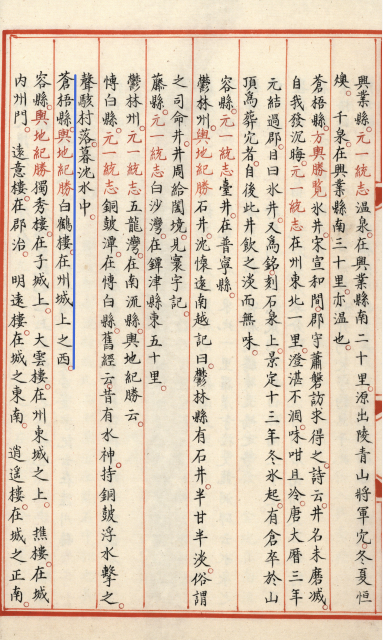 興業縣元一統志温泉在興業縣南二十里源出陵青山將軍宂冬夏恒
燠 千泉在興業縣南三十里亦温也
蒼梧縣方輿勝覽氷井宋宣和間郡守蕭磐訪求得之詩云井名未磨滅
自我發沉晦元一統志在州東北一里澄湛不涸味咁且冷唐大曆三年
元結過郡目曰氷井又爲銘刻石泉上景定十三年冬氷起有倉卒於山
頂爲葬宂者自後此井飲之淡而無味
容縣元一統志臺井在普寧縣
鬱林州輿地紀勝石井沈懷遠南越記曰鬱林縣有石井半甘半淡俗謂
之司命井井周給闔境見寰宇記
藤縣元一統志白沙灣在鐔津縣東五十里
鬱林州元一統志五龍灣在南流縣輿地紀勝云
慱白縣元一統志銅皷潭在慱白縣舊經云昔有水神持銅皷浮水擊之
聲駭村落暮沈水中
蒼梧縣輿地紀勝白鶴樓在州城上之西
容縣輿地紀勝獨秀樓在子城上 大雲樓在州東城之上 樵樓在城
内州門 遠意樓在郡治 明遠樓在城之東南 逍遥樓在城之正南